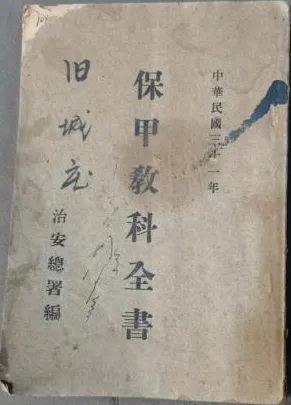 中華民國三十一年
保甲敎科全書
治安總署編
旧城瓦